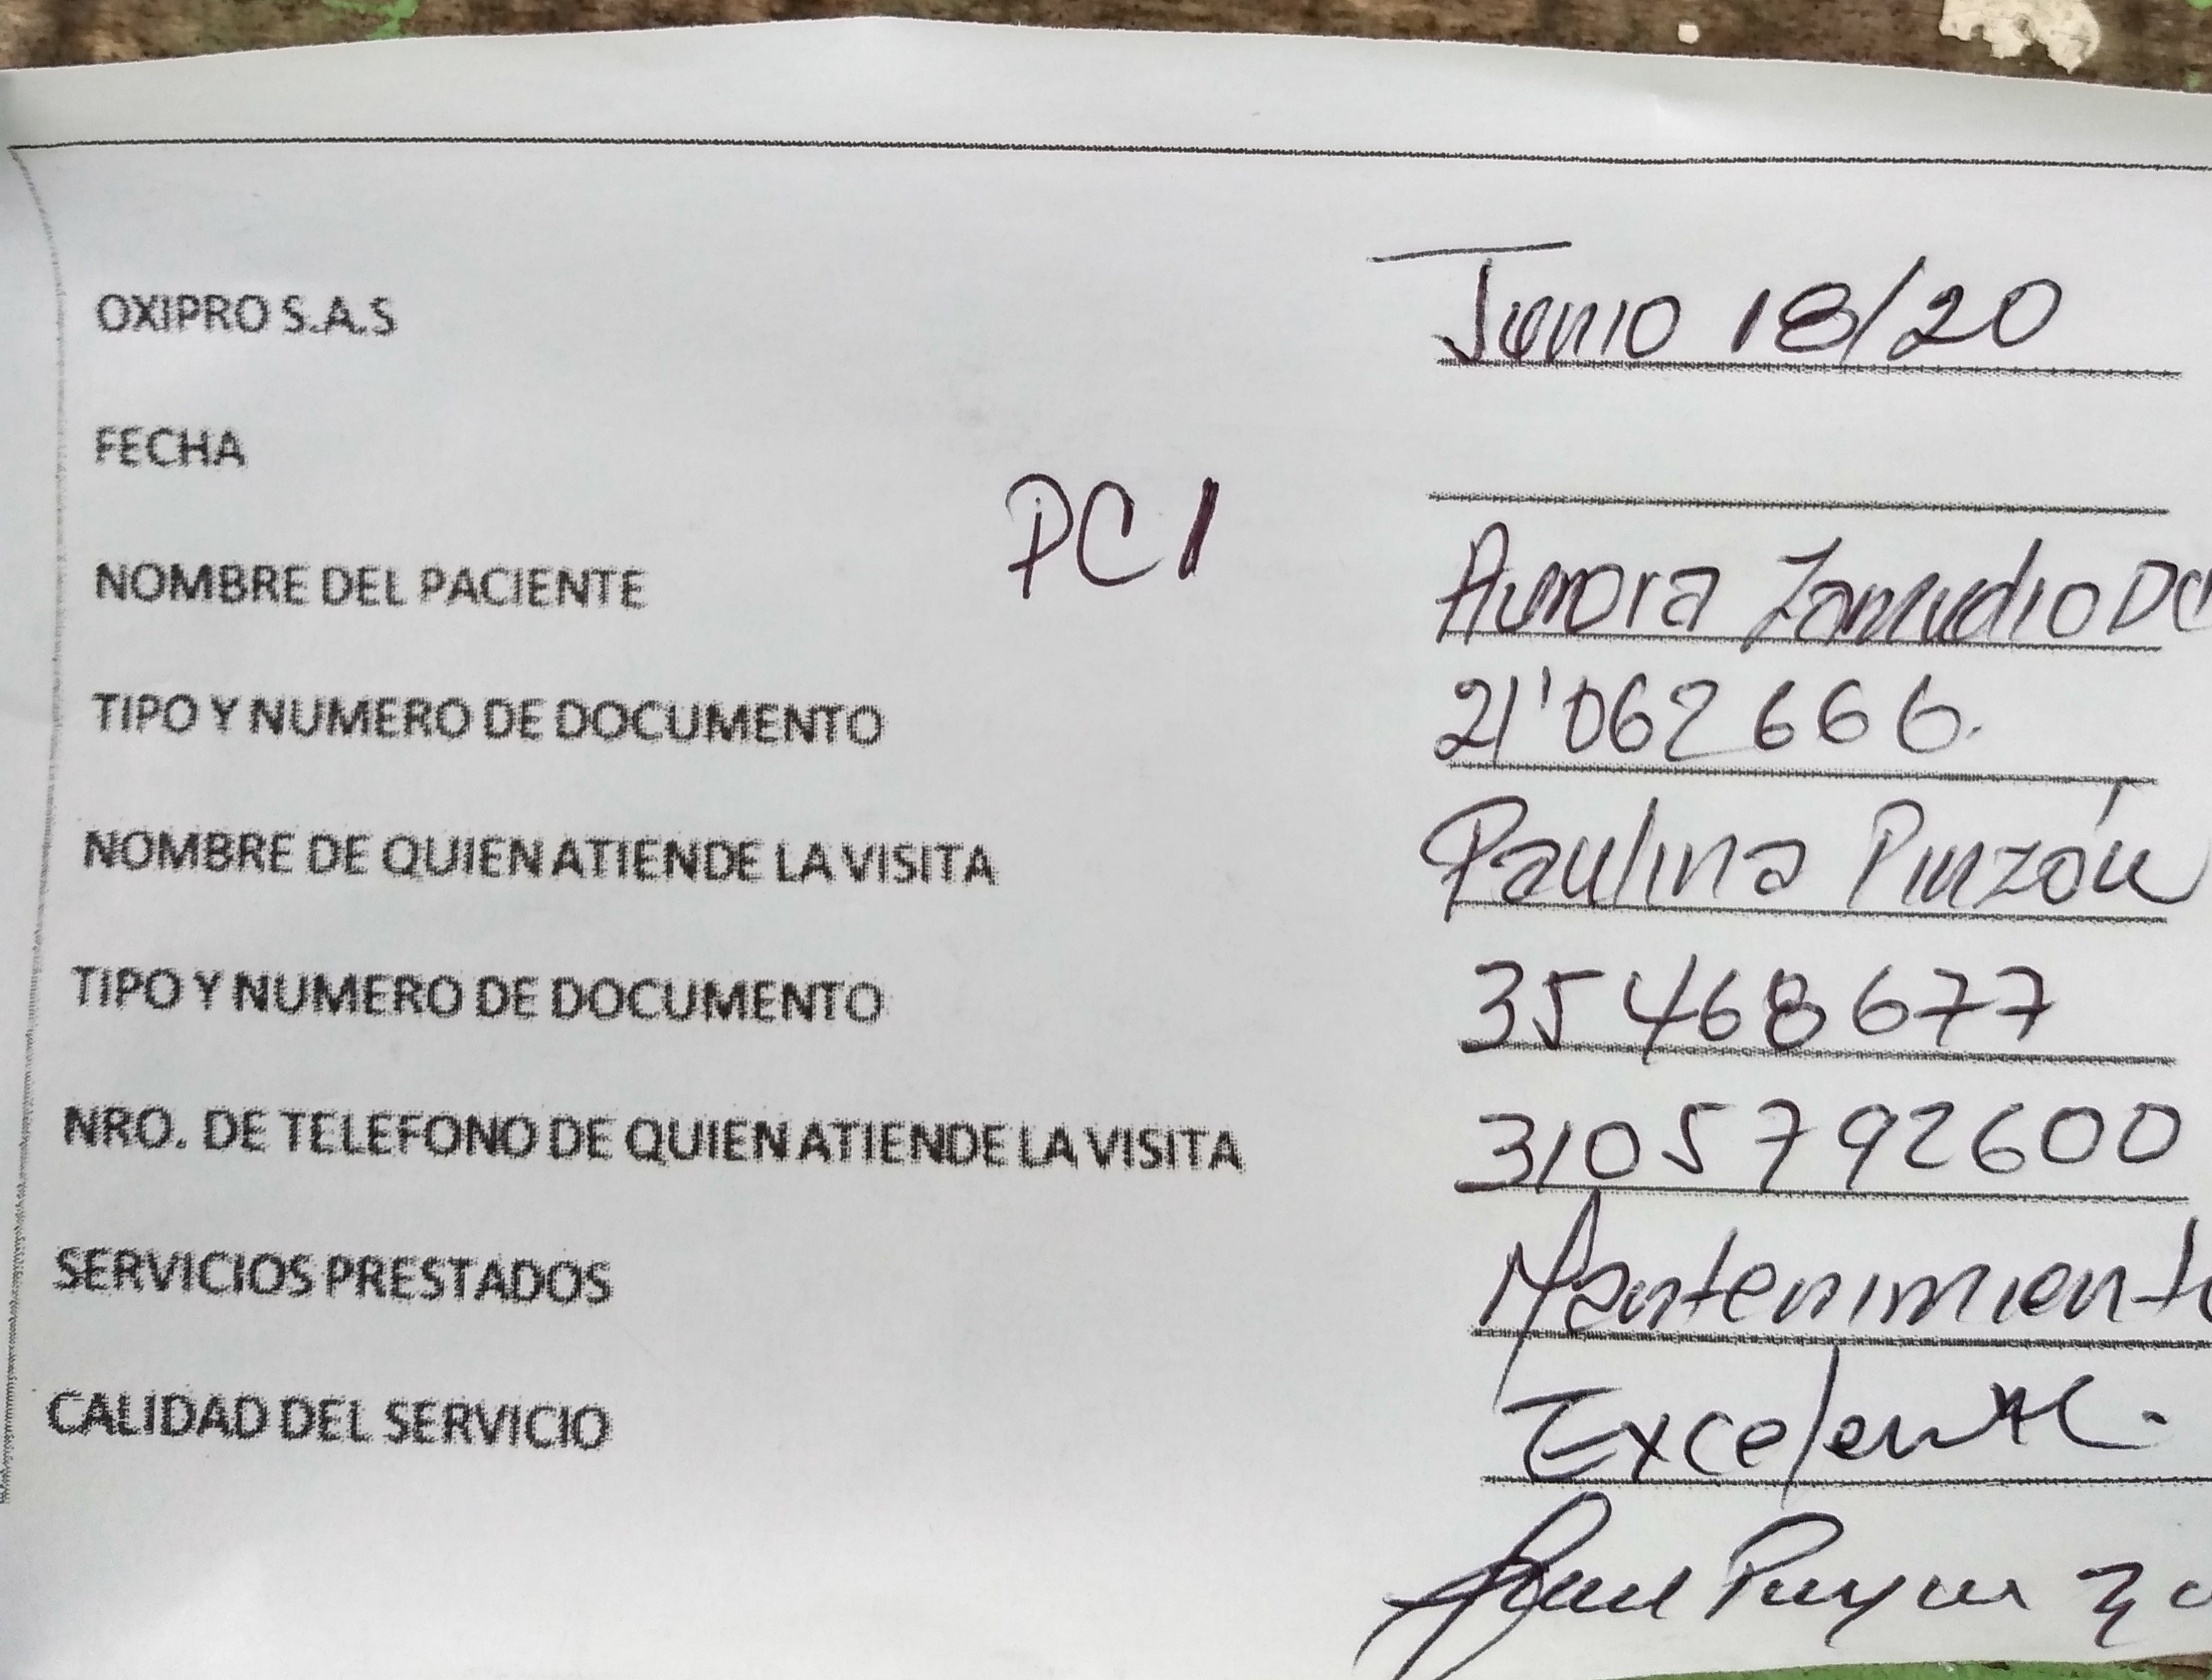 OXIPRO S.A.S Junio 18/20
FECHA
PC1
NOMBRE DEL PACIENTE Aurora Zamudio
TIPO Y NUMERO DE DOCUMENTO 21'062 666.
NOMBRE DE QUIEN ATIENDE LA VISITA Paulina Pinzón
TIPO Y NUMERO DE DOCUMENTO 35468677
NRO. DE TELEFONO DE QUIEN ATIENDE LA VISITA 3105792600
SERVICIOS PRESTADOS Mantenimiento
CALIDAD DEL SERVICIO Excelente.